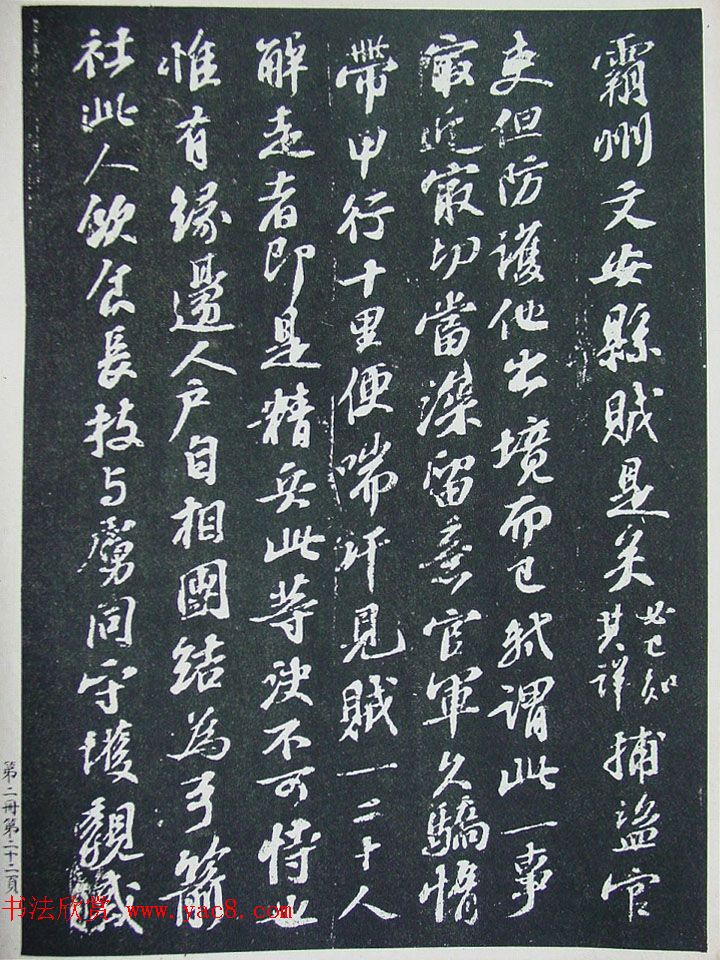 霸州文安縣賊是矣必已知其詳捕盜官
吏但防護他出境而已軾謂此一事
最近最切當深留意官軍久驕惰
帶甲行十里便喘汗見賊一二十人
解走者即是精兵此等決不可恃也
惟有緣邊人戶自相團結為弓箭
社此人飲食長技与虜同守墳親戚
第二冊第二十二頁
书法欣赏 www.yac8.com